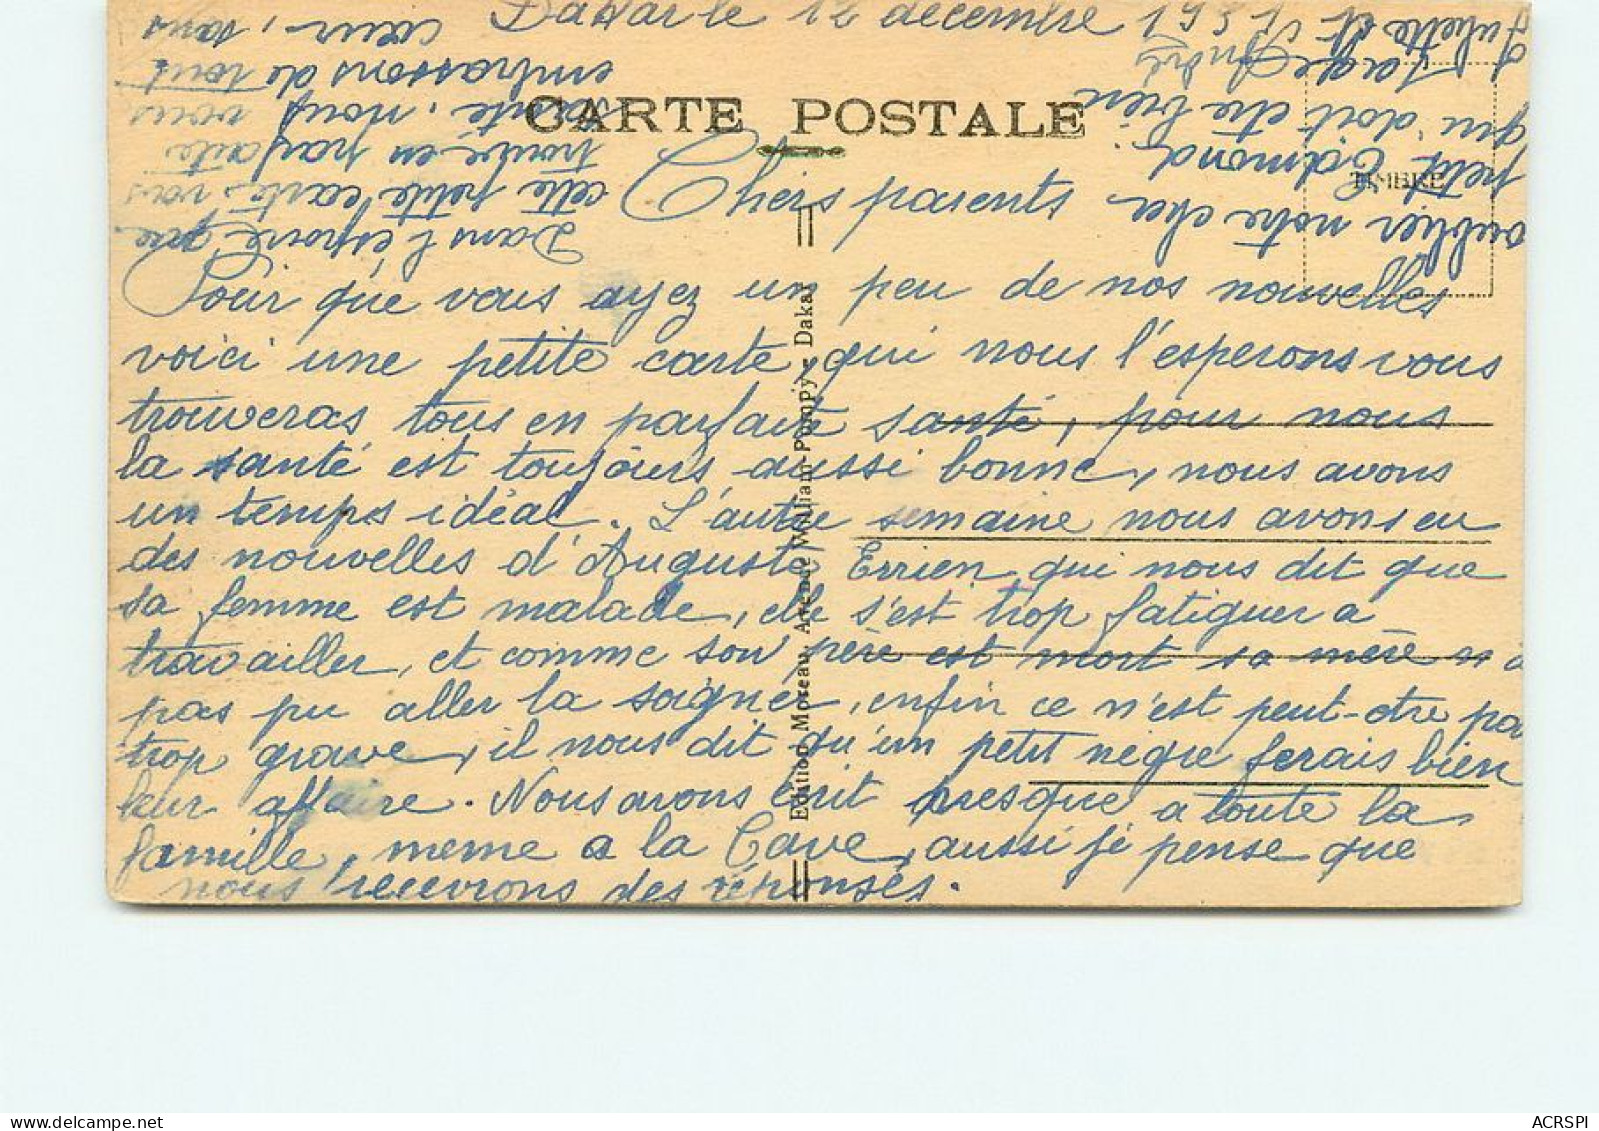 Dakar le 12 décembre 1931
CARTE POSTALE
TIMBRE
Chers parents
Pour que vous ayez un peu de nos nouvelles
voici une petite carte, qui nous l'esperons vous
trouveras tous en parfaite santé, pour nous
la santé est toujours aussi bonne, nous avons
un temps idéal. L'autre semaine nous avons eu
des nouvelles d'Auguste Errien qui nous dit que
sa femme est malade, elle s'est trop fatiguer a
travailler, et comme son père est mort sa mère n'a
pas pu aller la soigner, enfin ce n'est peut-etre pas
trop grave, il nous dit qu'un petit nègre ferais bien
leur affaire. Nous avons écrit presque a toute la
famille, meme a la Cave, aussi je pense que
nous recevrons des réponses.
Dans l'espoir que
cette petite carte, vous
trouve en parfaite
santé, nous vous
embrassons de tout
cœur, sans
oublier notre cher
petit Edmond,
qui doit etre bien
sage André
Juliette et
Edition Moreau, Avenue William-Pompy - Dakar
ACRSPI